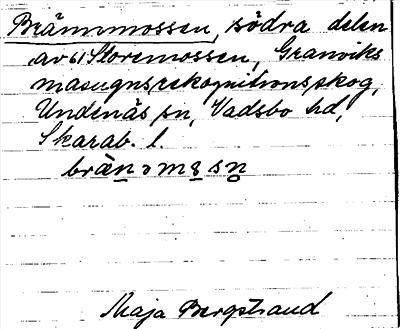 Brännmossen, södra delen
av 61 Storemossen, Granviks
masugnsrekognitionsskog,
Undenäs sn, Vadsbo hd,
Skarab. l.
Maja Bergstrand